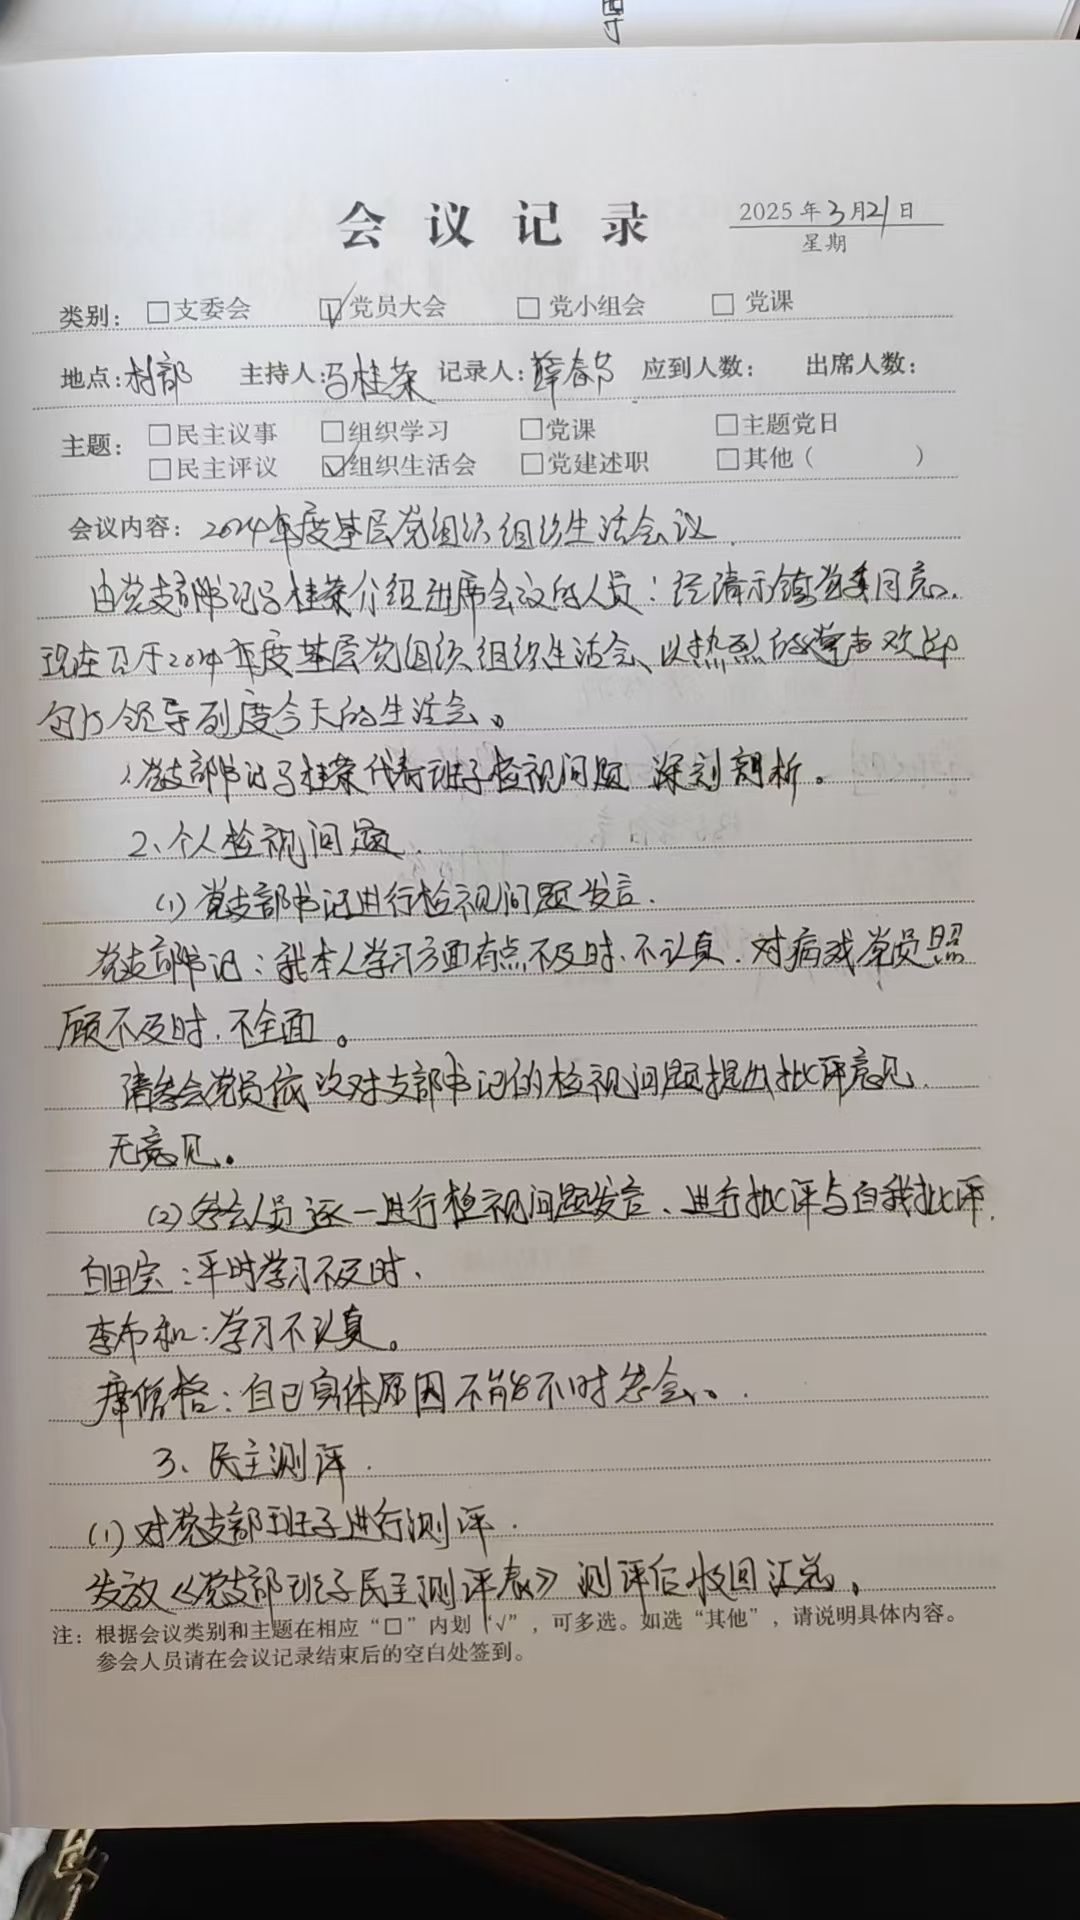 会议记录
2025年3月21日
星期
类别: □支委会 ☑党员大会 □党小组会 □党课
地点:村部 主持人:马桂荣 记录人:薛春 应到人数: 出席人数:
主题: □民主议事 □组织学习 □党课 □主题党日
□民主评议 ☑组织生活会 □党建述职 □其他( )
会议内容: 2024年度基层党组织组织生活会议.
由党支部书记马桂荣介绍出席会议的人员:经请示镇党委同意.
现在召开2024年度基层党组织组织生活会、以热烈的掌声欢迎
领导到度今天的生活会。
1、党支部书记马桂荣代表班子检视问题 深刻剖析。
2、个人检视问题.
(1) 党支部书记进行检视问题发言.
党支部书记:我本人学习方面有点不及时、不认真.对病残党员照
顾不及时.不全面。
请参会党员依次对支部书记的检视问题提出批评意见.
无意见。
(2) 参会人员逐一进行检视问题发言、进行批评与自我批评.
白田宝:平时学习不及时、
李布和:学习不认真。
自己身体原因不能不时参会、.
3、民主测评.
(1) 对党支部班子进行测评.
发放《党支部班子民主测评表》测评后收回汇总.
注:根据会议类别和主题在相应“□”内划“√”,可多选。如选“其他”,请说明具体内容。
参会人员请在会议记录结束后的空白处签到。